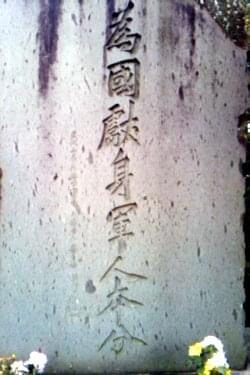 為國獻身軍人本分